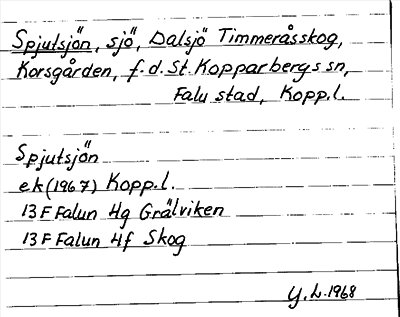 Spjutsjön, sjö, Dalsjö Timmeråsskog,
Korsgården, f.d. St. Kopparbergs sn,
Falu stad, Kopp.l.
Spjutsjön
ek (1967) Kopp.l.
13F Falun 4g Grälviken
13F Falun 4f Skog
Y.L. 1968